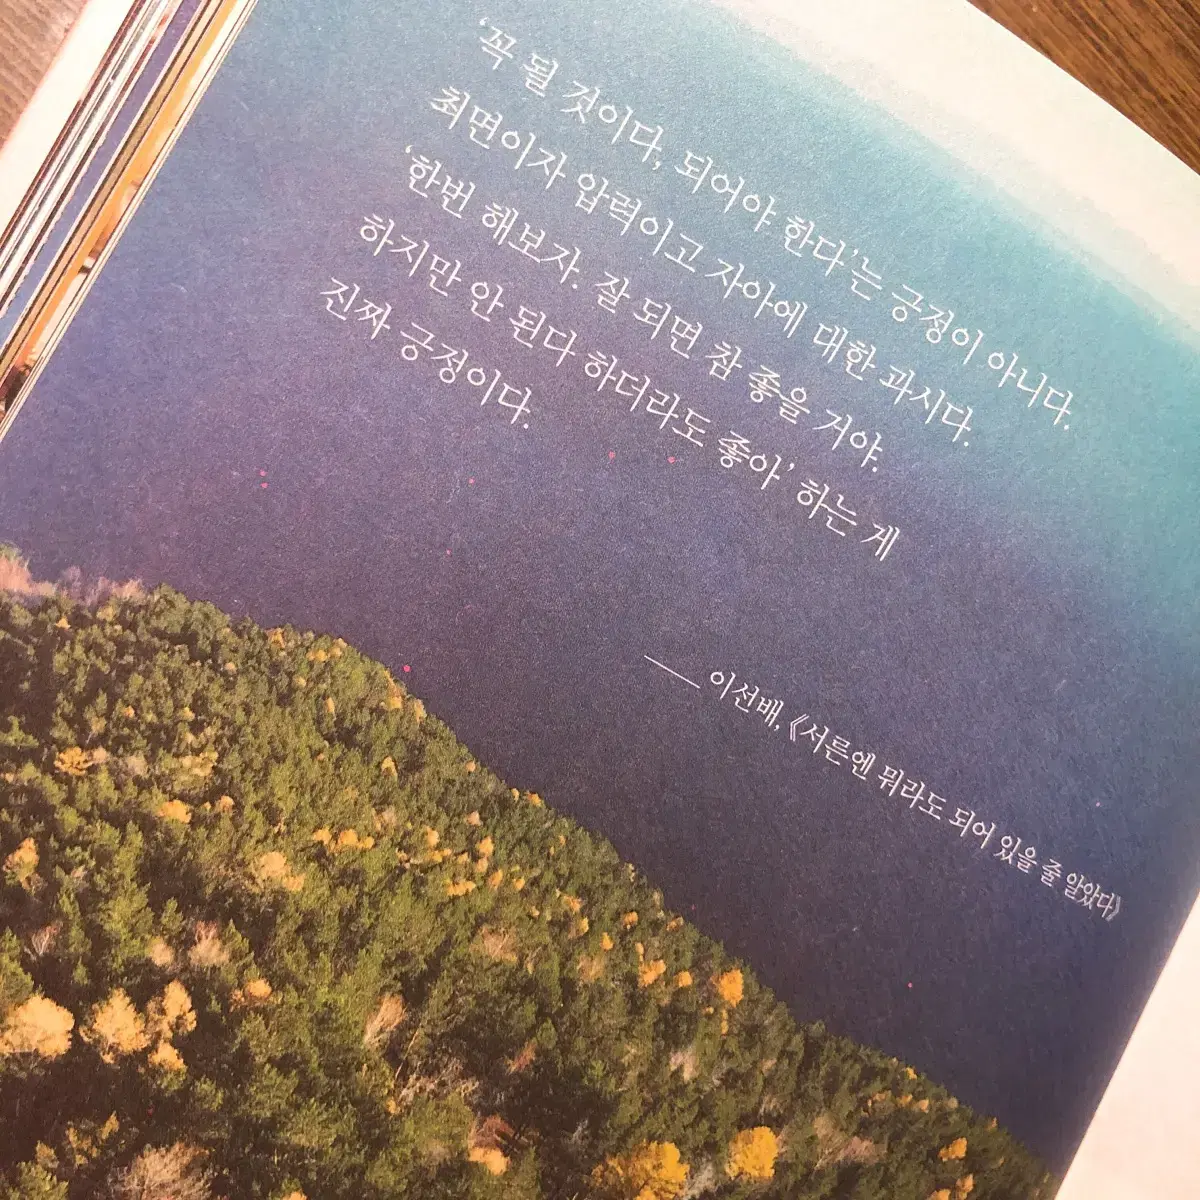 ‘꼭 될 것이다, 되어야 한다’는 긍정이 아니다.
최면이자 압력이고 자아에 대한 과시다.
‘한번 해보자. 잘 되면 참 좋을 거야.
하지만 안 된다 하더라도 좋아’ 하는 게
진짜 긍정이다.
── 이선배, 《서른엔 뭐라도 되어 있을 줄 알았다》